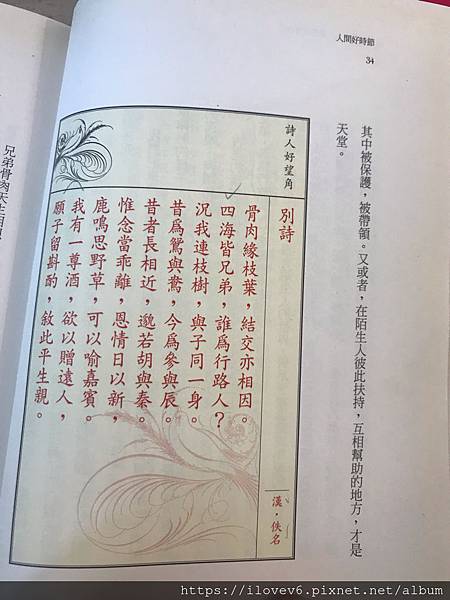 人間好時節
34
其中被保護，被帶領。又或者，在陌生人彼此扶持，互相幫助的地方，才是
天堂。
詩人好望角
別詩
漢・佚名
骨肉緣枝葉，結交亦相因。
四海皆兄弟，誰為行路人？
況我連枝樹，與子同一身。
昔為鴛與鴦，今為參與辰。
昔者長相近，邈若胡與秦。
惟念當乖離，恩情日以新，
鹿鳴思野草，可以喻嘉賓。
我有一尊酒，欲以贈遠人，
願子留斟酌，敘此平生親。
兄弟骨肉天生相
https://ilovev6.pixnet.net/album